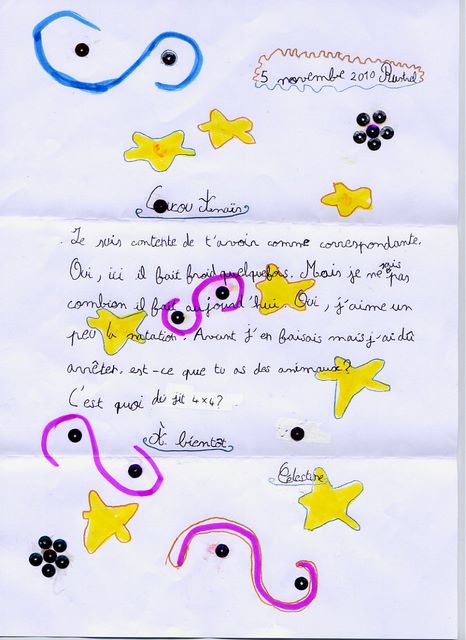 5 novembre 2010 Rustrel
Coucou Xenaïs
Je suis contente de t'avoir comme correspondante.
Oui, ici il fait froid quelquefois. Mais je ne sais pas
combien il fait aujourd'hui. Oui, j'aime un
peu la natation. Avant j'en faisais mais j'ai dû
arrêter. est-ce que tu as des animaux?
C'est quoi du jit 4x4?
À bientot
Célestine